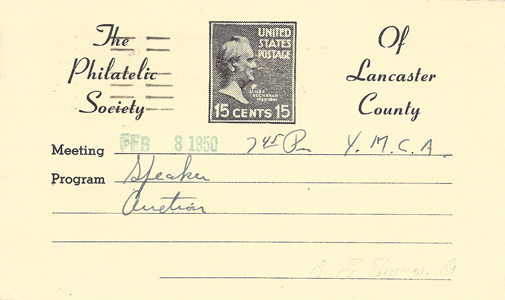 The
Philatelic
Society
UNITED
STATES
POSTAGE
JAMES
BUCHANAN
15 CENTS 15
Of
Lancaster
County
Meeting FEB 8 1950 7 45 P. Y. M. C. A.
Program Speaker
Auction